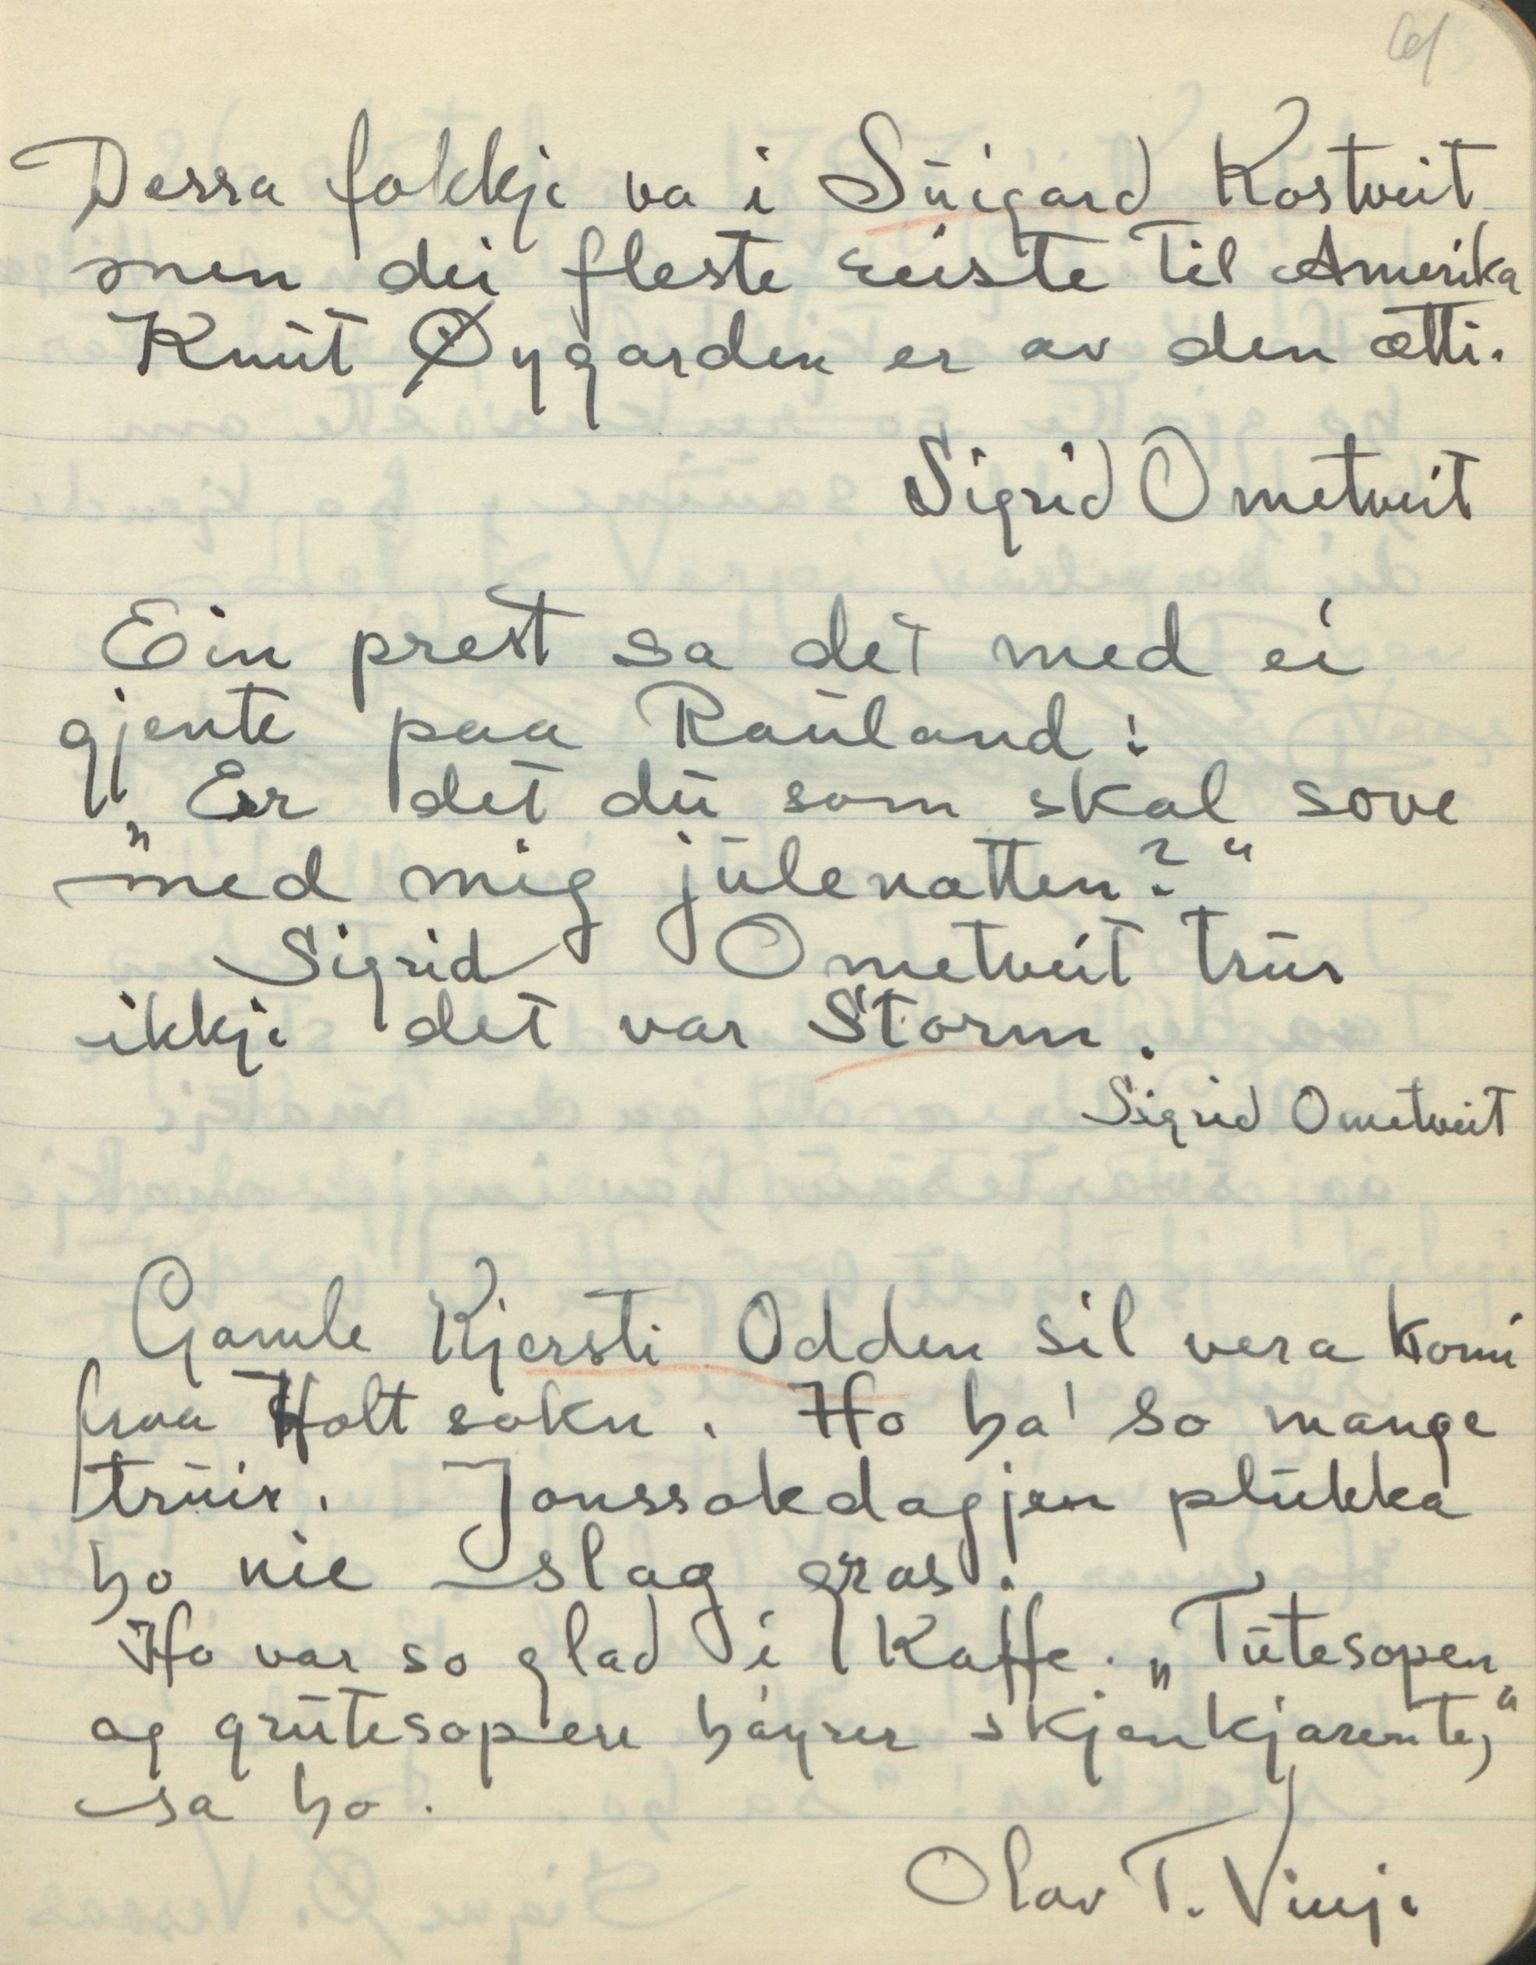 61
Dessa fokkje va i Suigard Kostveit
men dei fleste reiste til Amerika
Knut Øygarden er av den ætti.
Sigrid Ometveit
Ein prest sa det med ei
gjente paa Rauland:
„Er det du som skal sove
med mig julenatten?“
Sigrid Ometveit trur
ikkje det var Storm.
Sigrid Ometveit
Gamle Kjersti Odden sil vera komi
fraa Holt sokn. Ho ha' so mange
truir. Jonssokdagjen plukka
ho nie slag gras.
Ho var so glad i Kaffe. „Tutesopen
og grutesopen høyrer skjenkjarente,“
sa ho.
Olav T. Vinje